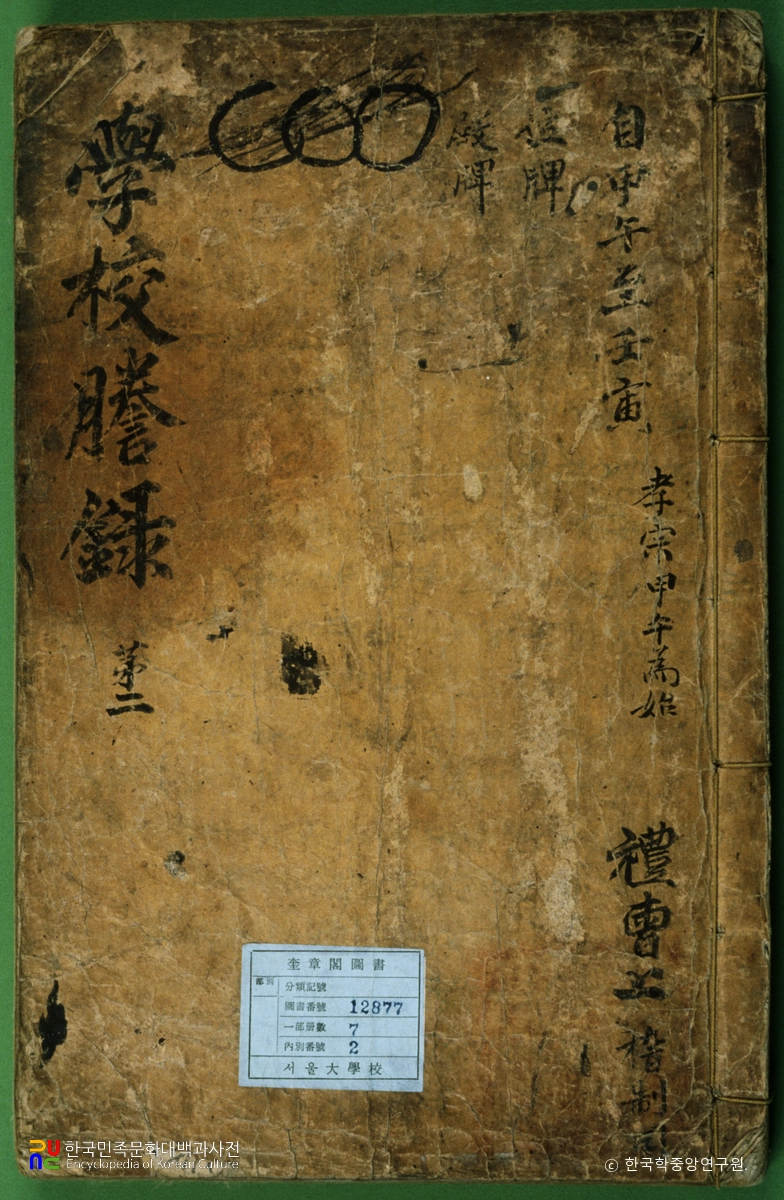 自甲午至壬寅
孝宗甲午為始
禮曹上 稽制司
位牌
殿牌
學校謄錄 第二
奎章閣圖書
部別
分類記號
圖書番號 12877
一部冊數 7
內別番號 2
서울大學校
한국민족문화대백과사전
Encyclopedia of Korean Culture
© 한국학중앙연구원.